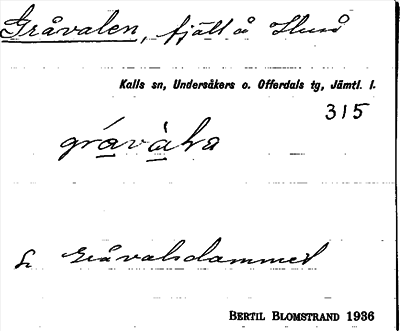 Gråvalen, fjäll å
Kalls sn, Undersåkers o. Offerdals tg, Jämtl. l.
315
gråvàla
Gråvalsdammet
BERTIL BLOMSTRAND 1936